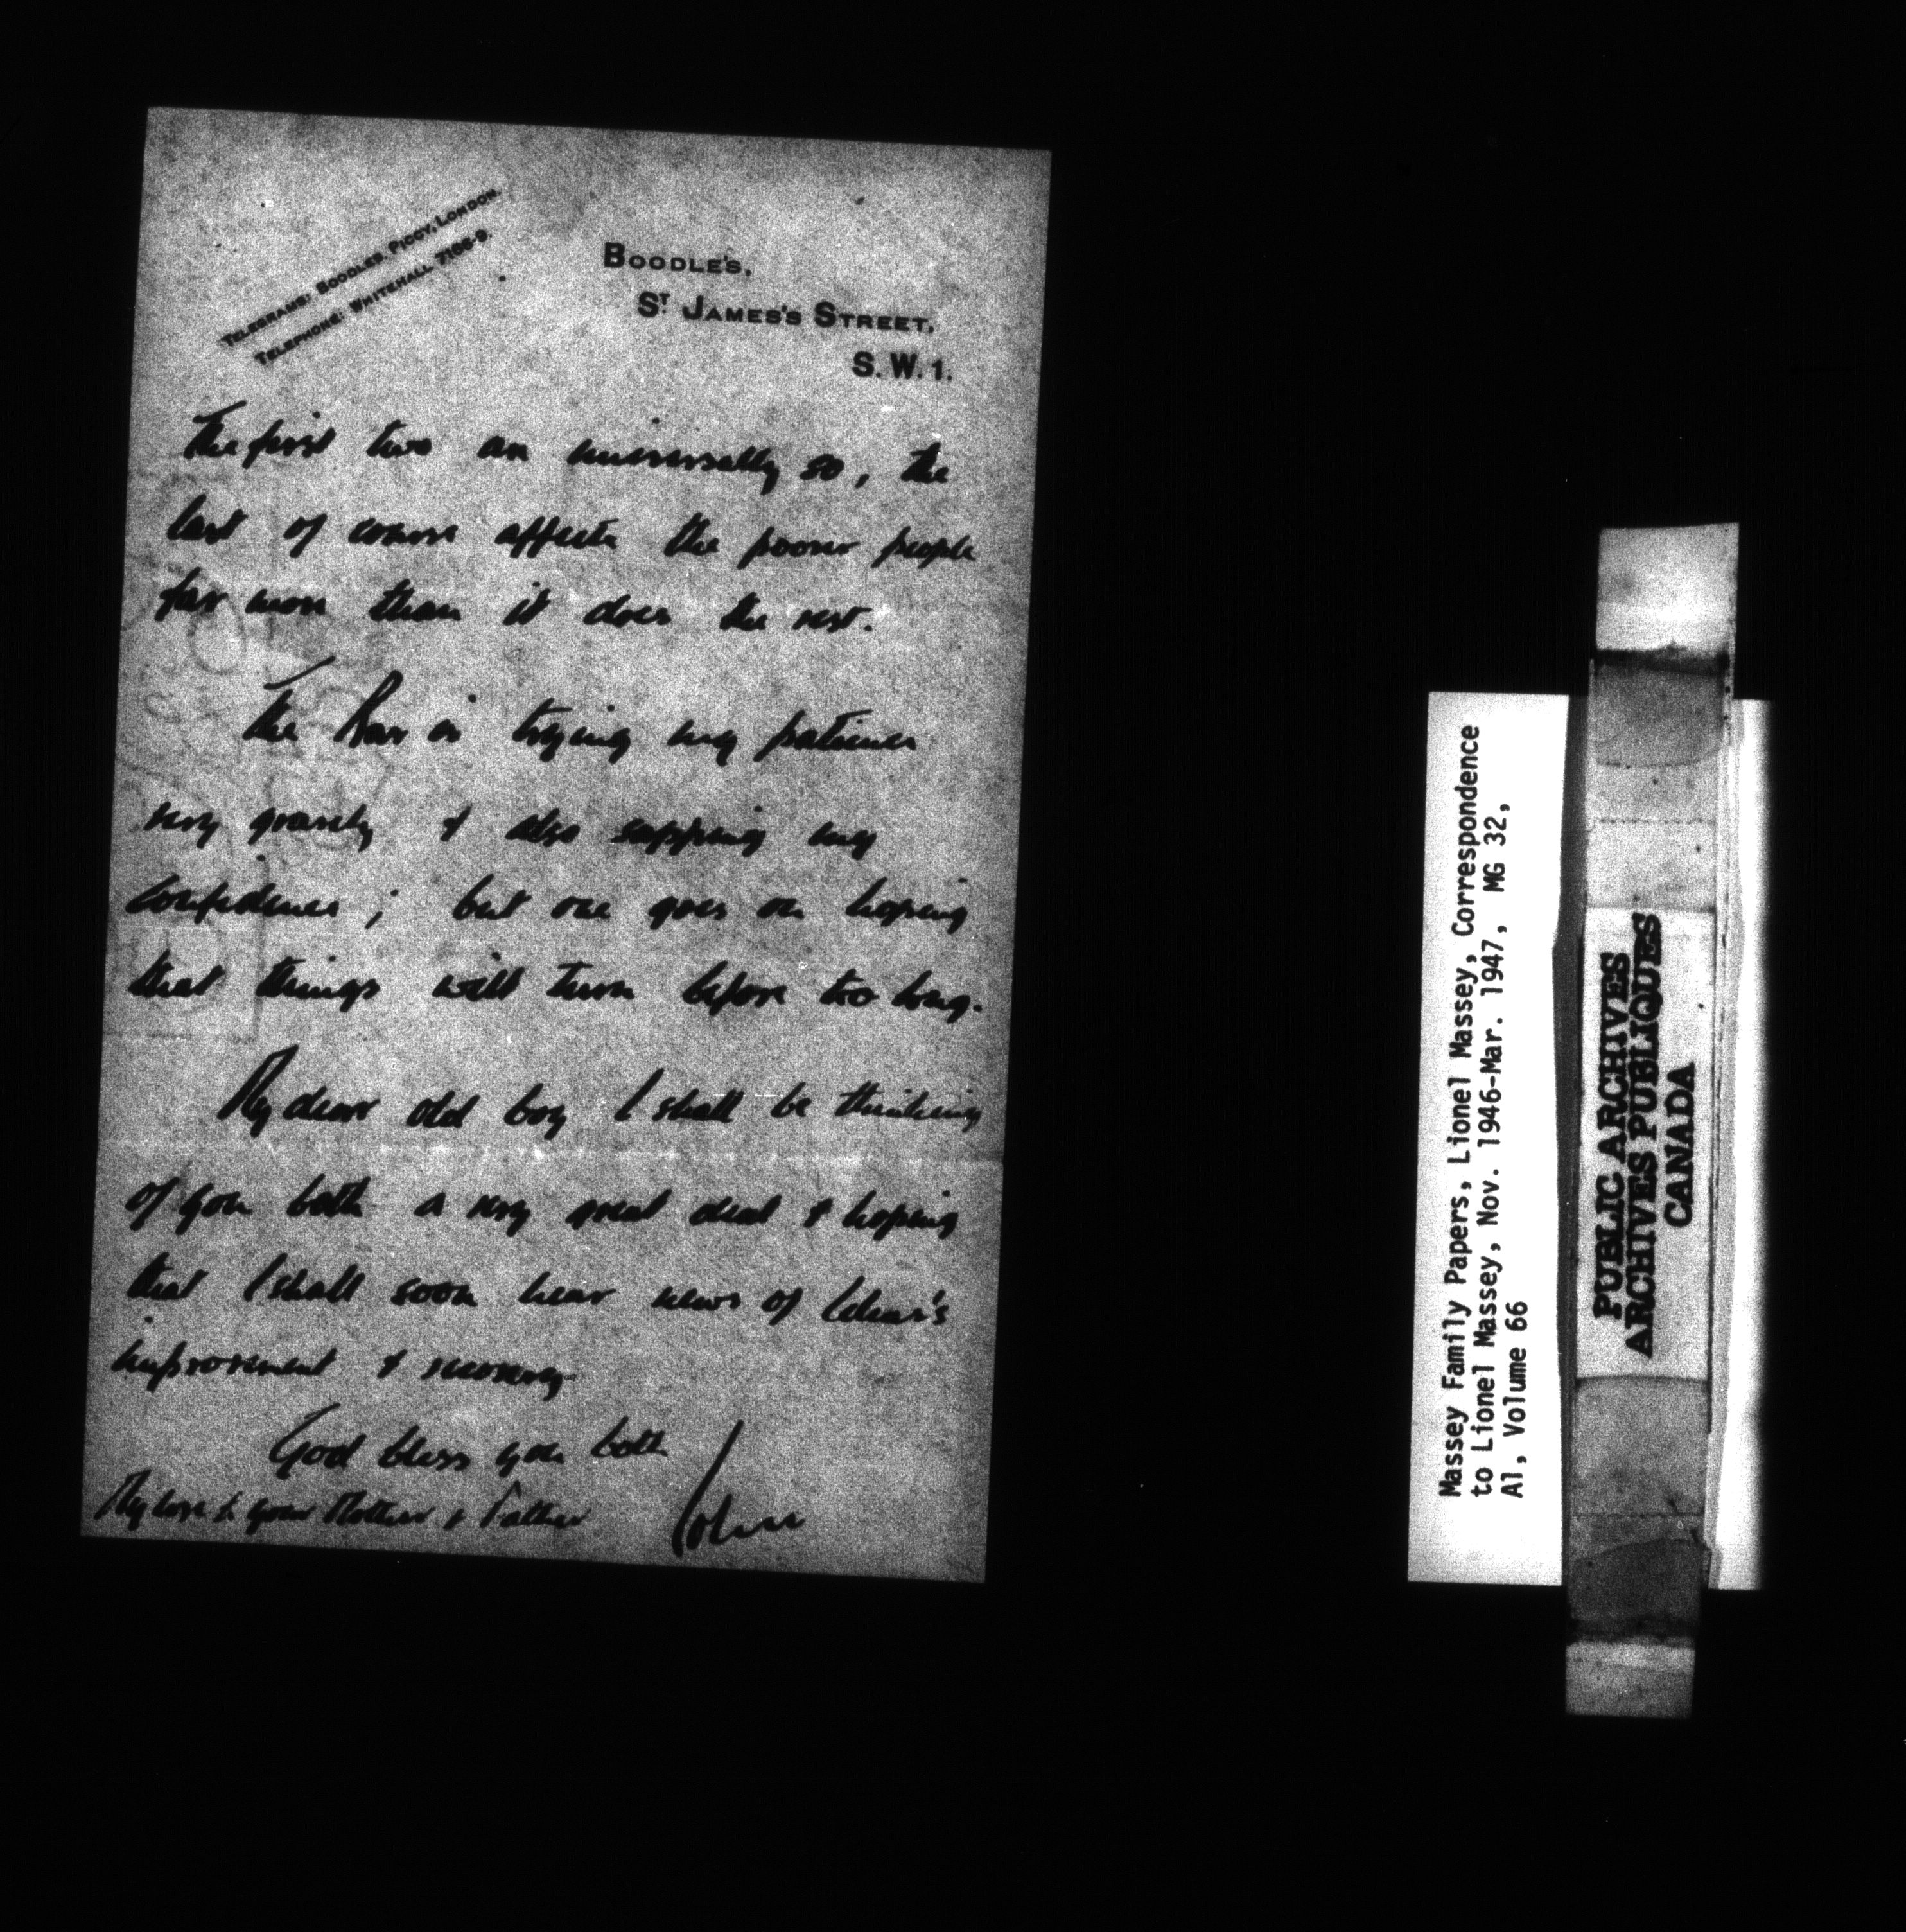 TELEGRAMS: BOODLES, PICCY, LONDON.
TELEPHONE: WHITEHALL 7166-9.
BOODLE'S,
ST JAMES'S STREET,
S. W. 1.
The first two are universally so, the
last of course affects the poorer people
far more than it does the rest.
The Bar is trying my patience
very gravely & also sapping my
confidence ; but one goes on hoping
that things will turn before too long.
My dear old boy I shall be thinking
of you both a very great deal & hoping
that I shall soon hear news of Lilias's
improvement & recovery
God bless you both
My love to your Mother & Father
John
Massey Family Papers, Lionel Massey, Correspondence
to Lionel Massey, Nov. 1946-Mar. 1947, MG 32,
A1, Volume 66
PUBLIC ARCHIVES
ARCHIVES PUBLIQUES
CANADA